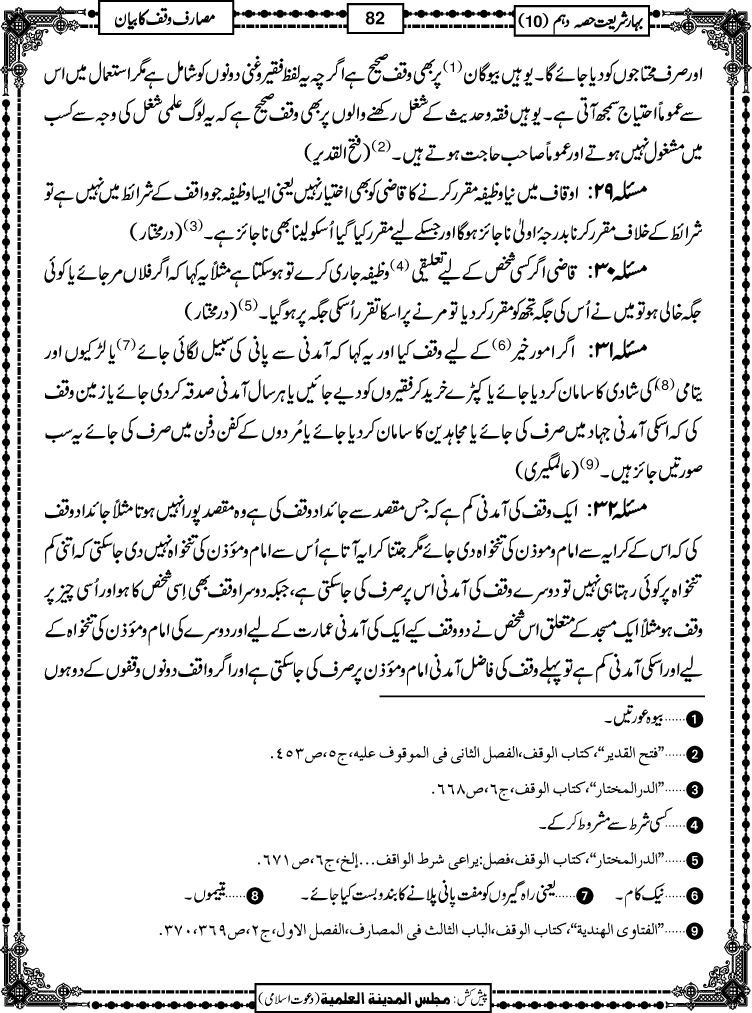 بہارِ شریعت حصہ دہم (10)
82
مصارف وقف کا بیان
اور صرف محتاجوں کو دیا جائے گا۔ یوہیں بیوگان(1) پر بھی وقف صحیح ہے اگرچہ یہ لفظ فقیر و غنی دونوں کو شامل ہے مگر استعمال میں اس
سے عموماً احتیاج سمجھ آتی ہے۔ یوہیں فقہ و حدیث کے شغل رکھنے والوں پر بھی وقف صحیح ہے کہ یہ لوگ علمی شغل کی وجہ سے کسب
میں مشغول نہیں ہوتے اور عموماً صاحب حاجت ہوتے ہیں۔(2) (فتح القدیر)
مسئلہ ۲۹: اوقاف میں نیا وظیفہ مقرر کرنے کا قاضی کو بھی اختیار نہیں یعنی ایسا وظیفہ جو واقف کے شرائط میں نہیں ہے تو
شرائط کے خلاف مقرر کرنا بدرجۂ اولیٰ ناجائز ہوگا اور جسکے لیے مقرر کیا گیا اُسکو لینا بھی ناجائز ہے۔(3) (درمختار)
مسئلہ ۳۰: قاضی اگر کسی شخص کے لیے تعلیقی(4) وظیفہ جاری کرے تو ہوسکتا ہے مثلاً یہ کہا کہ اگر فلاں مرجائے یا کوئی
جگہ خالی ہو تو میں نے اُس کی جگہ تجھ کو مقرر کردیا تو مرنے پر اسکا تقرر اُسکی جگہ پر ہوگیا۔(5) (درمختار)
مسئلہ ۳۱: اگر امورِ خیر(6) کے لیے وقف کیا اور یہ کہا کہ آمدنی سے پانی کی سبیل لگائی جائے(7) یا لڑکیوں اور
یتامی(8) کی شادی کا سامان کردیا جائے یا کپڑے خرید کر فقیروں کو دیے جائیں یا ہر سال آمدنی صدقہ کردی جائے یا زمین وقف
کی کہ اسکی آمدنی جہاد میں صرف کی جائے یا مجاہدین کا سامان کردیا جائے یا مُردوں کے کفن دفن میں صرف کی جائے یہ سب
صورتیں جائز ہیں۔(9) (عالمگیری)
مسئلہ ۳۲: ایک وقف کی آمدنی کم ہے کہ جس مقصد سے جائداد وقف کی ہے وہ مقصد پورا نہیں ہوتا مثلاً جائداد وقف
کی کہ اس کے کرایہ سے امام و موذن کی تنخواہ دی جائے مگر جتنا کرایہ آتا ہے اُس سے امام و مؤذن کی تنخواہ نہیں دی جاسکتی کہ اتنی کم
تنخواہ پر کوئی رہتا ہی نہیں تو دوسرے وقف کی آمدنی اس پر صرف کی جاسکتی ہے، جبکہ دوسرا وقف بھی اِسی شخص کا ہو اور اُسی چیز پر
وقف ہو مثلاً ایک مسجد کے متعلق اس شخص نے دو وقف کیے ایک کی آمدنی عمارت کے لیے اور دوسرے کی امام و مؤذن کی تنخواہ کے
لیے اور اسکی آمدنی کم ہے تو پہلے وقف کی فاضل آمدنی امام و مؤذن پر صرف کی جاسکتی ہے اور اگر واقف دونوں وقفوں کے دو ہوں
1 ......بیوہ عورتیں۔
2 ......”فتح القدیر“،کتاب الوقف،الفصل الثانی فی الموقوف علیه،ج٥،ص٤٥٣.
3 ......”الدرالمختار“،کتاب الوقف،ج٦،ص٦٦٨.
4 ......کسی شرط سے مشروط کرکے۔
5 ......”الدرالمختار“،کتاب الوقف،فصل:یراعی شرط الواقف...إلخ،ج٦،ص٦٧١.
6 ......نیک کام۔ 7 ......یعنی راہ گیروں کو مفت پانی پلانے کا بندوبست کیا جائے۔ 8 ......یتیموں۔
9 ......”الفتاوی الهندیة“،کتاب الوقف،الباب الثالث فی المصارف،الفصل الاول،ج٢،ص٣٦٩،٣٧٠.
پیش کش: مجلس المدینۃ العلمیۃ (دعوت اسلامی)